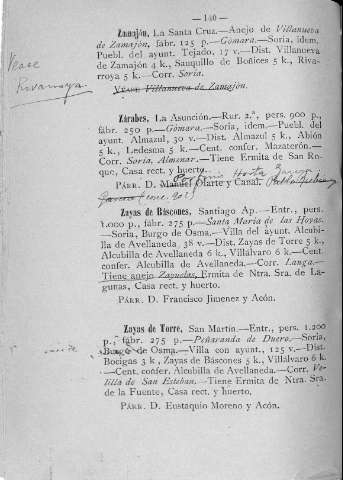 — 140 —
Zamajón, La Santa Cruz.—Anejo de Villanueva
de Zamajón, fábr. 125 p.—Gómara.—Soria, idem.
Puebl. del ayunt. Tejado, 17 v.—Dist. Villanueva
de Zamajón 4 k., Sauquillo de Boñices 5 k., Riva-
rroya 5 k.—Corr. Soria.
Véase
Rivarroya
Véase Villanueva de Zamajón.
Zárabes, La Asunción.—Rur. 2.ª, pers. 900 p.,
fábr. 250 p.—Gómara.—Soria, idem.—Puebl. del
ayunt. Almazul, 30 v.—Dist. Almazul 5 k., Abión
5 k., Ledesma 5 k.—Cent. confer. Mazaterón.—
Corr. Soria, Almenar.—Tiene Ermita de San Ro-
que, Casa rect. y huerto.
Párr. D. Manuel Olarte y Canal.
Zayas de Báscones, Santiago Ap.—Entr., pers.
1.000 p., fábr. 275 p.—Santa María de las Hoyas.
—Soria, Burgo de Osma.—Villa del ayunt. Alcubi-
lla de Avellaneda, 38 v.—Dist. Zayas de Torre 5 k.,
Alcubilla de Avellaneda 6 k., Villálvaro 6 k.—Cent.
confer. Alcubilla de Avellaneda.—Corr. Langa.—
Tiene anejo Zayuelas, Ermita de Ntra. Sra. de La-
gunas, Casa rect. y huerto.
Párr. D. Francisco Jimenez y Acón.
Zayas de Torre, San Martín.—Entr., pers. 1.200
p., fábr. 275 p.—Peñaranda de Duero.—Soria,
Burgo de Osma.—Villa con ayunt., 125 v.—Dist.
Bocigas 3 k., Zayas de Báscones 5 k., Villálvaro 6 k.
—Cent. confer. Alcubilla de Avellaneda.—Corr. Ve-
lilla de San Esteban.—Tiene Ermita de Ntra. Sra.
de la Fuente, Casa rect. y huerto.
Párr. D. Eustaquio Moreno y Acón.